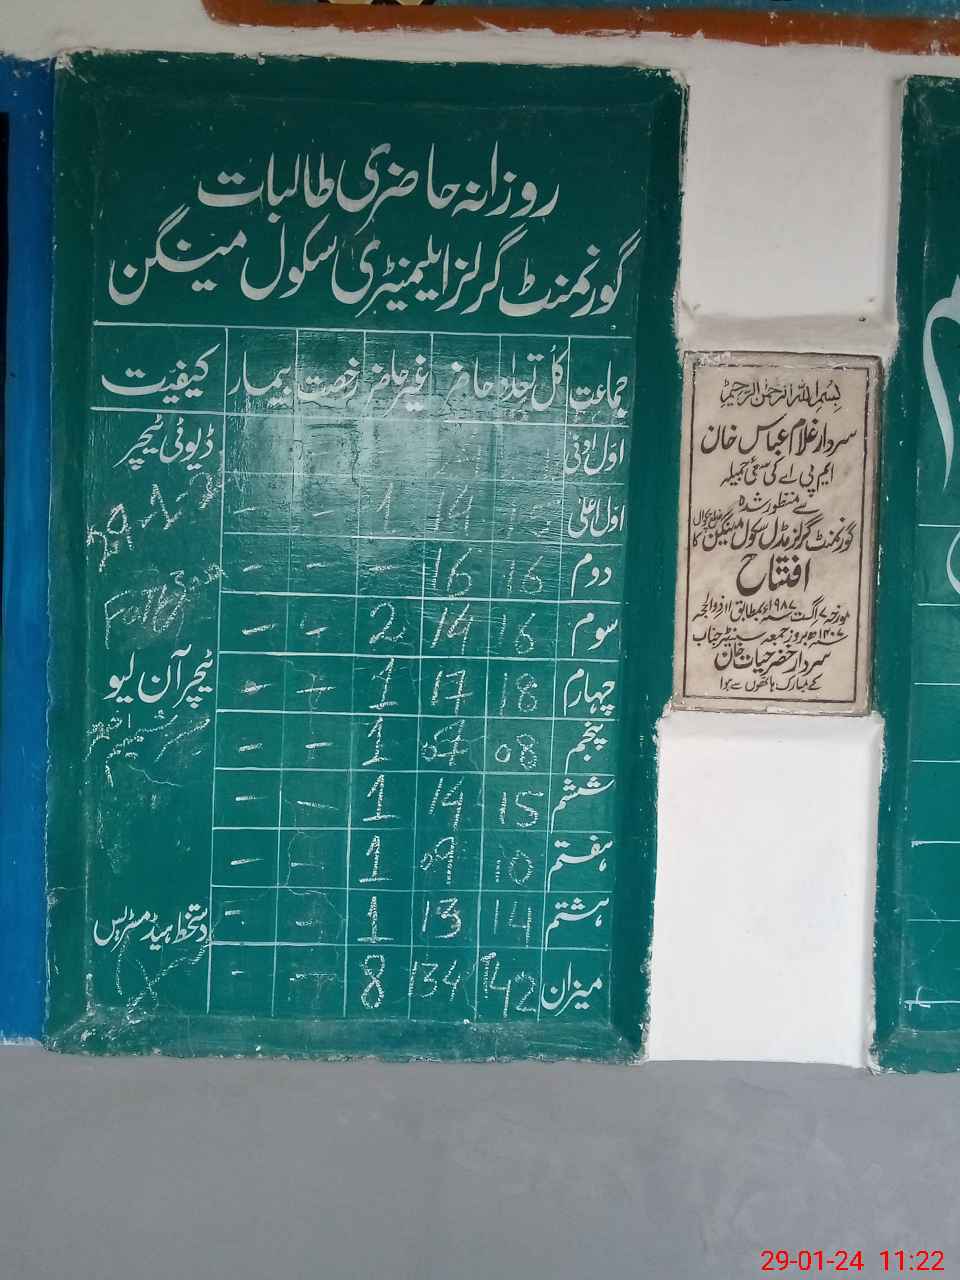 روزانہ حاضری طالبات
گورنمنٹ گرلز ایلیمنٹری سکول مینگن
جماعت کل تعداد حاضر غیر حاضر رخصت بیمار کیفیت
اول ادنیٰ ڈیوٹی ٹیچر
اول اعلیٰ 14 1 - -
دوم 16 16 - - -
سوم 16 14 2 - -
چہارم 18 17 1 - - ٹیچر آن لیو
پنجم 08 07 1 - -
ششم 15 14 1 - -
ہفتم 10 09 1 - -
ہشتم 14 13 1 - - دستخط ہیڈمسٹریس
میزان 142 134 8 - -
بسم اللہ الرحمن الرحیم
سردار غلام عباس خان
ایم پی اے کی سعئی جمیلہ
سے منظور شدہ
گورنمنٹ گرلز مڈل سکول مینگن ضلع چکوال کا
افتتاح
مورخہ ۷ اگست سنہ ۱۹۸۷ء بمطابق ۱۱ ذوالحجہ
۱۴۰۷ھ بروز جمعہ سینیٹر جناب
سردار خضر حیات خان
کے مبارک ہاتھوں سے ہوا
29-01-24 11:22